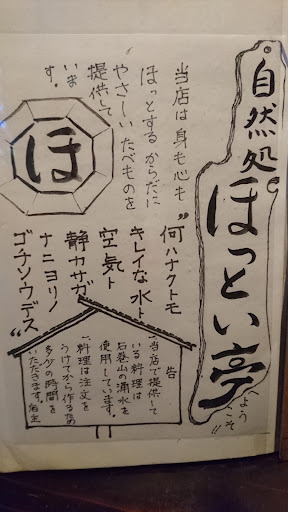 自然処
ほっとい亭
ようこそ!!
当店は身も心も
ほっとする からだに
やさしい たべものを
提供して
います。
ほ
"何ハナクトモ
キレイな水ト
空気ト
静カサガ
ナニヨリノ
ゴチソウデス"
告
「当店で提供して
いる料理は
石巻山の湧水を
使用しています。
「料理は注文を
うけてから作るため
多少の時間を
いただきます。店主